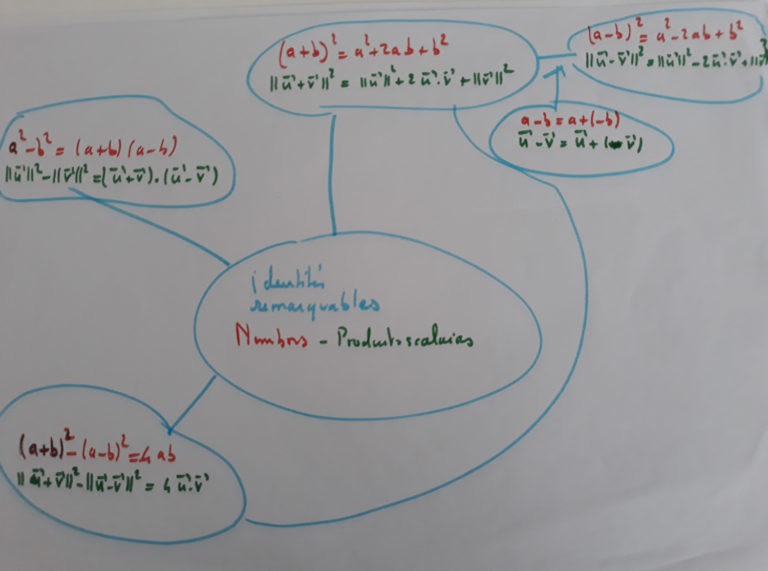 (a+b)² = a²+2ab+b²
||u⃗+v⃗||² = ||u⃗||²+2 u⃗.v⃗ +||v⃗||²
(a-b)² = a²-2ab+b²
||u⃗-v⃗||² = ||u⃗||²-2u⃗.v⃗+||v⃗||²
a-b = a+(-b)
u⃗-v⃗ = u⃗+(-v⃗)
a²-b² = (a+b)(a-b)
||u⃗||²-||v⃗||² = (u⃗+v⃗).(u⃗-v⃗)
identités
remarquables
Nombres - Produits scalaires
(a+b)²-(a-b)² = 4ab
||u⃗+v⃗||²-||u⃗-v⃗||² = 4 u⃗.v⃗